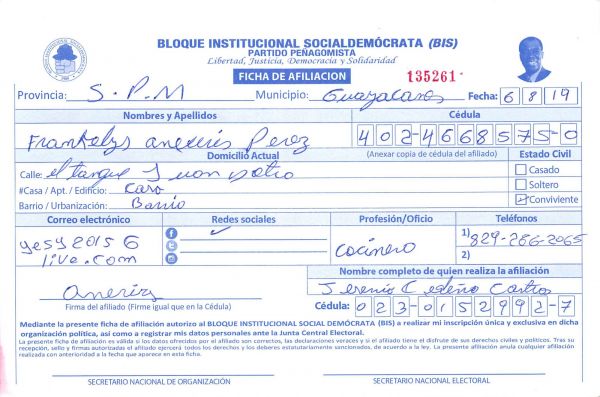 BLOQUE INSTITUCIONAL SOCIALDEMÓCRATA (BIS)
PARTIDO PEÑAGOMISTA
Libertad, Justicia, Democracia y Solidaridad
FICHA DE AFILIACION
135261
Provincia: S.P.M Municipio: Guayacanes Fecha: 6 8 19
Nombres y Apellidos Cédula
Perez 402-4668575-0
Domicilio Actual (Anexar copia de cédula del afiliado) Estado Civil
Calle: el tanque Juan Casado
#Casa / Apt. / Edificio: Soltero
Barrio / Urbanización: Barrio Conviviente
Correo electrónico Redes sociales Profesión/Oficio Teléfonos
yesy2015 6 cocinero 1) 829-286-2065
live.com 2)
Nombre completo de quien realiza la afiliación
Cedeño Castro
Firma del afiliado (Firme igual que en la Cédula) Cédula: 023-0152992-7
Mediante la presente ficha de afiliación autorizo al BLOQUE INSTITUCIONAL SOCIAL DEMÓCRATA (BIS) a realizar mi inscripción única y exclusiva en dicha
organización política, así como a registrar mis datos personales ante la Junta Central Electoral.
La presente ficha de afiliación es válida si los datos ofrecidos por el afiliado son correctos, las declaraciones veraces y si el afiliado tiene el disfrute de sus derechos civiles y políticos. Tras su
recepción, sello y firmas autorizadas el afiliado ejercerá todos los derechos y los deberes estatutariamente sancionados, de acuerdo a la ley. La presente afiliación anula cualquier afiliación
realizada con anterioridad a la fecha que aparece en esta ficha.
SECRETARIO NACIONAL DE ORGANIZACIÓN SECRETARIO NACIONAL ELECTORAL